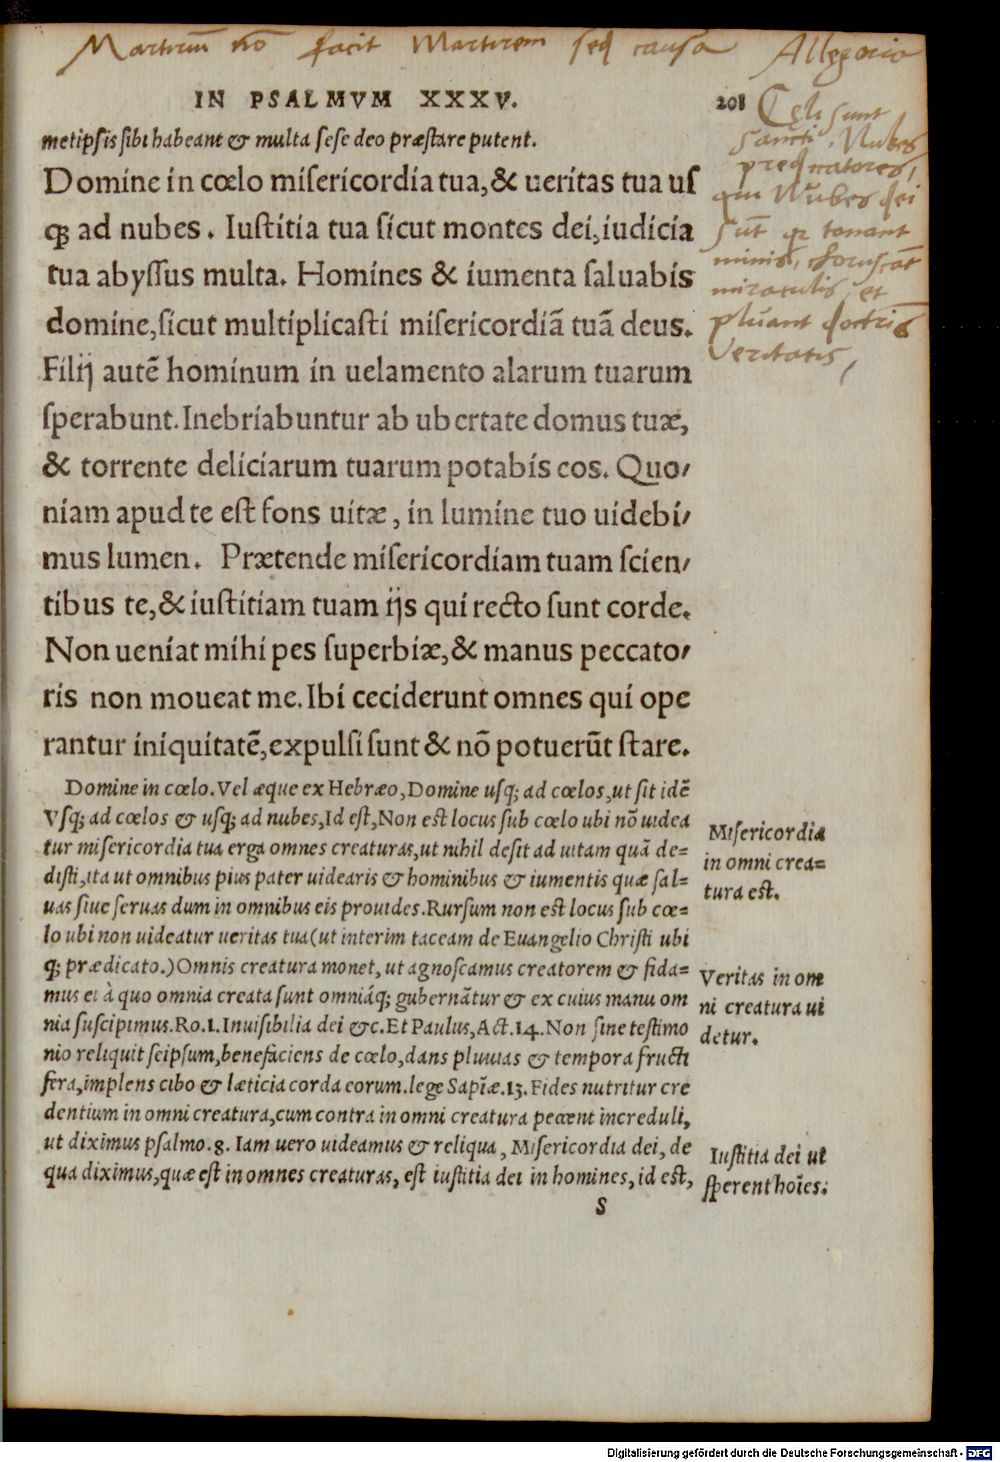 Martirum nō facit Martirem sed causa Allegoria
IN PSALMVM XXXV.
208
metipsis sibi habeant & multa sese deo præstare putent.
Domine in cœlo misericordia tua,& ueritas tua us
q; ad nubes. Iustitia tua sicut montes dei,iudicia
tua abyssus multa. Homines & iumenta saluabis
domine,sicut multiplicasti misericordiā tuā deus.
Filij autē hominum in uelamento alarum tuarum
sperabunt. Inebriabuntur ab ubertate domus tuæ,
& torrente deliciarum tuarum potabis eos. Quo/
niam apud te est fons uitæ, in lumine tuo uidebi/
mus lumen. Prætende misericordiam tuam scien/
tibus te,& iustitiam tuam ijs qui recto sunt corde.
Non ueniat mihi pes superbiæ,& manus peccato/
ris non moueat me. Ibi ceciderunt omnes qui ope
rantur iniquitatē,expulsi sunt & nō potuerūt stare.
Celi sunt
sancti. Nubes
predicatores,
qui Nubes dei
sūt q tonant
minis, choruscāt
miraculis, et
pluūant doctrīs
veritatis,
Domine in cœlo. Vel æque ex Hebræo, Domine usq; ad cœlos, ut sit idē
Vsq; ad cœlos & usq; ad nubes, Id est, Non est locus sub cœlo ubi nō uidea
tur misericordia tua erga omnes creaturas, ut nihil desit ad uitam quā de=
disti, ita ut omnibus pius pater uidearis & hominibus & iumentis quæ sal=
uas siue seruas dum in omnibus eis prouides. Rursum non est locus sub cœ=
lo ubi non uideatur ueritas tua (ut interim taceam de Euangelio Christi ubi
q; prædicato.) Omnis creatura monet, ut agnoscamus creatorem & fida=
mus ei à quo omnia creata sunt omniáq; gubernātur & ex cuius manu om
nia suscipimus. Ro.1. Inuisibilia dei &c. Et Paulus, Act.14. Non sine testimo
nio reliquit seipsum, benefaciens de cœlo, dans pluuias & tempora fructi
fera, implens cibo & læticia corda eorum. lege Sapīæ.13. Fides nutritur cre
dentium in omni creatura, cum contra in omni creatura pecent increduli,
ut diximus psalmo.8. Iam uero uideamus & reliqua, Misericordia dei, de
qua diximus, quæ est in omnes creaturas, est iustitia dei in homines, id est,
Misericordia
in omni crea=
tura est.
Veritas in om
ni creatura ui
detur.
Iustitia dei ut
sperent hoīes.
S
Digitalisierung gefördert durch die Deutsche Forschungsgemeinschaft - DFG